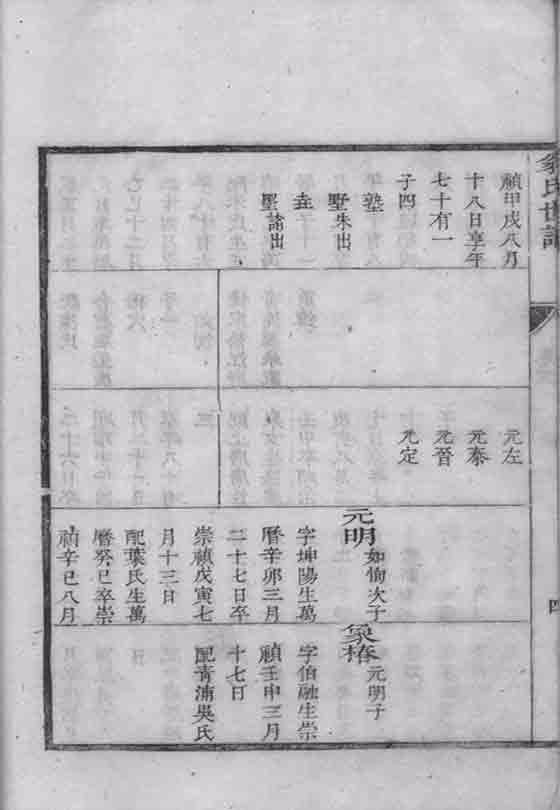 氏世譜
四
禎甲戌八月
十八日享年
七十有一
子四
塾
墅朱出
垚
堲諭出
元左
元泰
元晉
元定
元明
如恂次子
字坤陽生萬
曆辛卯三月
二十七日卒
崇禎戊寅七
月十三日
配葉氏生萬
曆癸巳卒崇
禎辛巳八月
象椿
元明子
字伯融生崇
禎壬申三月
十七日
配青浦吳氏